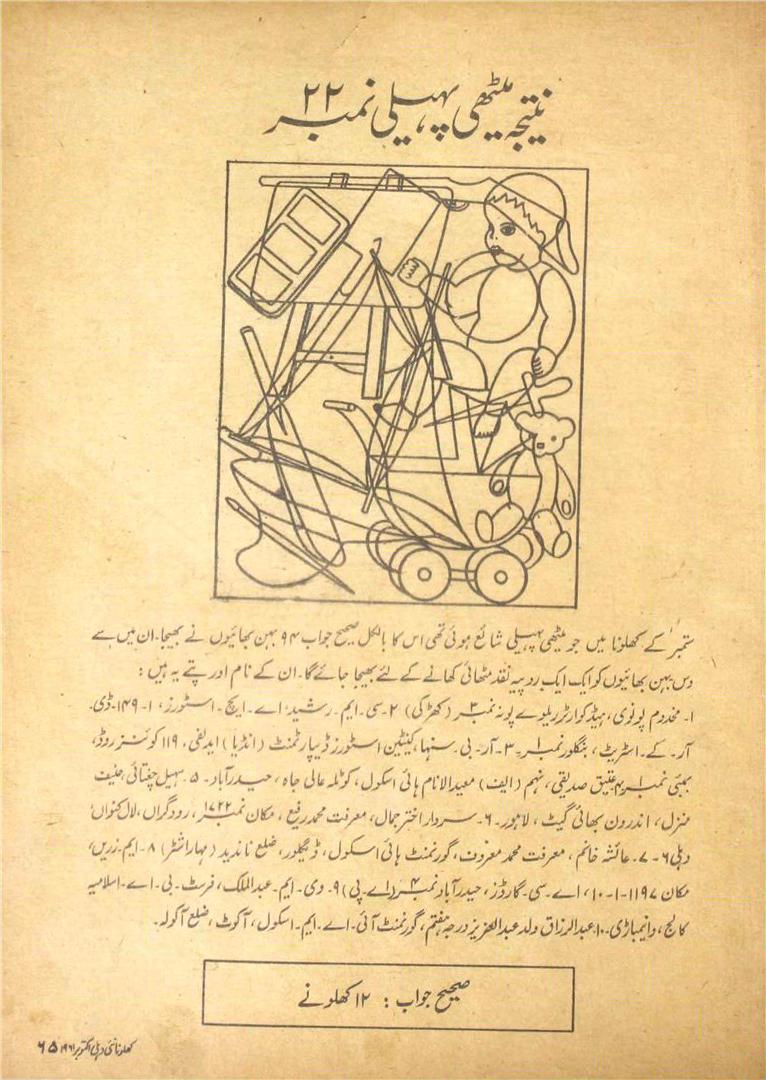 نتیجہ میٹھی پہیلی نمبر ۲۲
ستمبر کے کھلونا میں جو میٹھی پہیلی شائع ہوئی تھی اس کا بالکل صحیح جواب ۹۴ بہن بھائیوں نے بھیجا۔ ان میں سے
دس بہن بھائیوں کو ایک ایک روپیہ نقد مٹھائی کھانے کے لئے بھیجا جائے گا۔ ان کے نام اور پتے یہ ہیں :
۱۔ مخدوم پونوی، ہیڈ کوارٹر ریلوے پونہ نمبر ۳ (کھڑکی) ۲۔ سی۔ ایم۔ رشید، اے۔ ایچ۔ اسٹورز، ۱-۱۴۹۔ ڈی۔
آر۔ کے۔ اسٹریٹ، بنگلور نمبر ۱۔ ۳۔ آر۔ بی۔ سنہا، کینٹین اسٹورز ڈیپارٹمنٹ (انڈیا) ایڈلفی، ۱۱۹ کوئنز روڈ،
بمبئی نمبر ۱۔ ۴۔ عتیق صدیقی، نہم (الیف) معید الانام ہائی اسکول، کوٹلہ عالی جاہ، حیدرآباد۔ ۵۔ سہیل چغتائی حنیف
منزل، اندرون بھائی گیٹ، لاہور۔ ۶۔ سردار اختر جمال، معرفت محمد رفیع، مکان نمبر ۱۷۲۲، رودگراں، لال کنواں،
دہلی ۶۔ ۷۔ عائشہ خانم، معرفت محمد معروف، گورنمنٹ ہائی اسکول، ڈیگلور، ضلع ناندیڈ (مہاراشٹر) ۸۔ ایم۔ زریں،
مکان ۱۱۹۷-۱-۱۰، اے۔ سی۔ گارڈز، حیدرآباد نمبر ۴ (اے۔ پی) ۹۔ وی۔ ایم۔ عبدالملک، فرسٹ۔ بی۔ اے۔ اسلامیہ
کالج، وانمباڑی۔ ۱۰۔ عبدالرزاق ولد عبدالعزیز درجہ ہفتم، گورنمنٹ آئی۔ اے۔ ایم۔ اسکول، آکوٹ، ضلع آکولہ۔
صحیح جواب : ۱۲ کھلونے
کھلونا نئی دہلی اکتوبر ۱۹۶۱ ۶۵